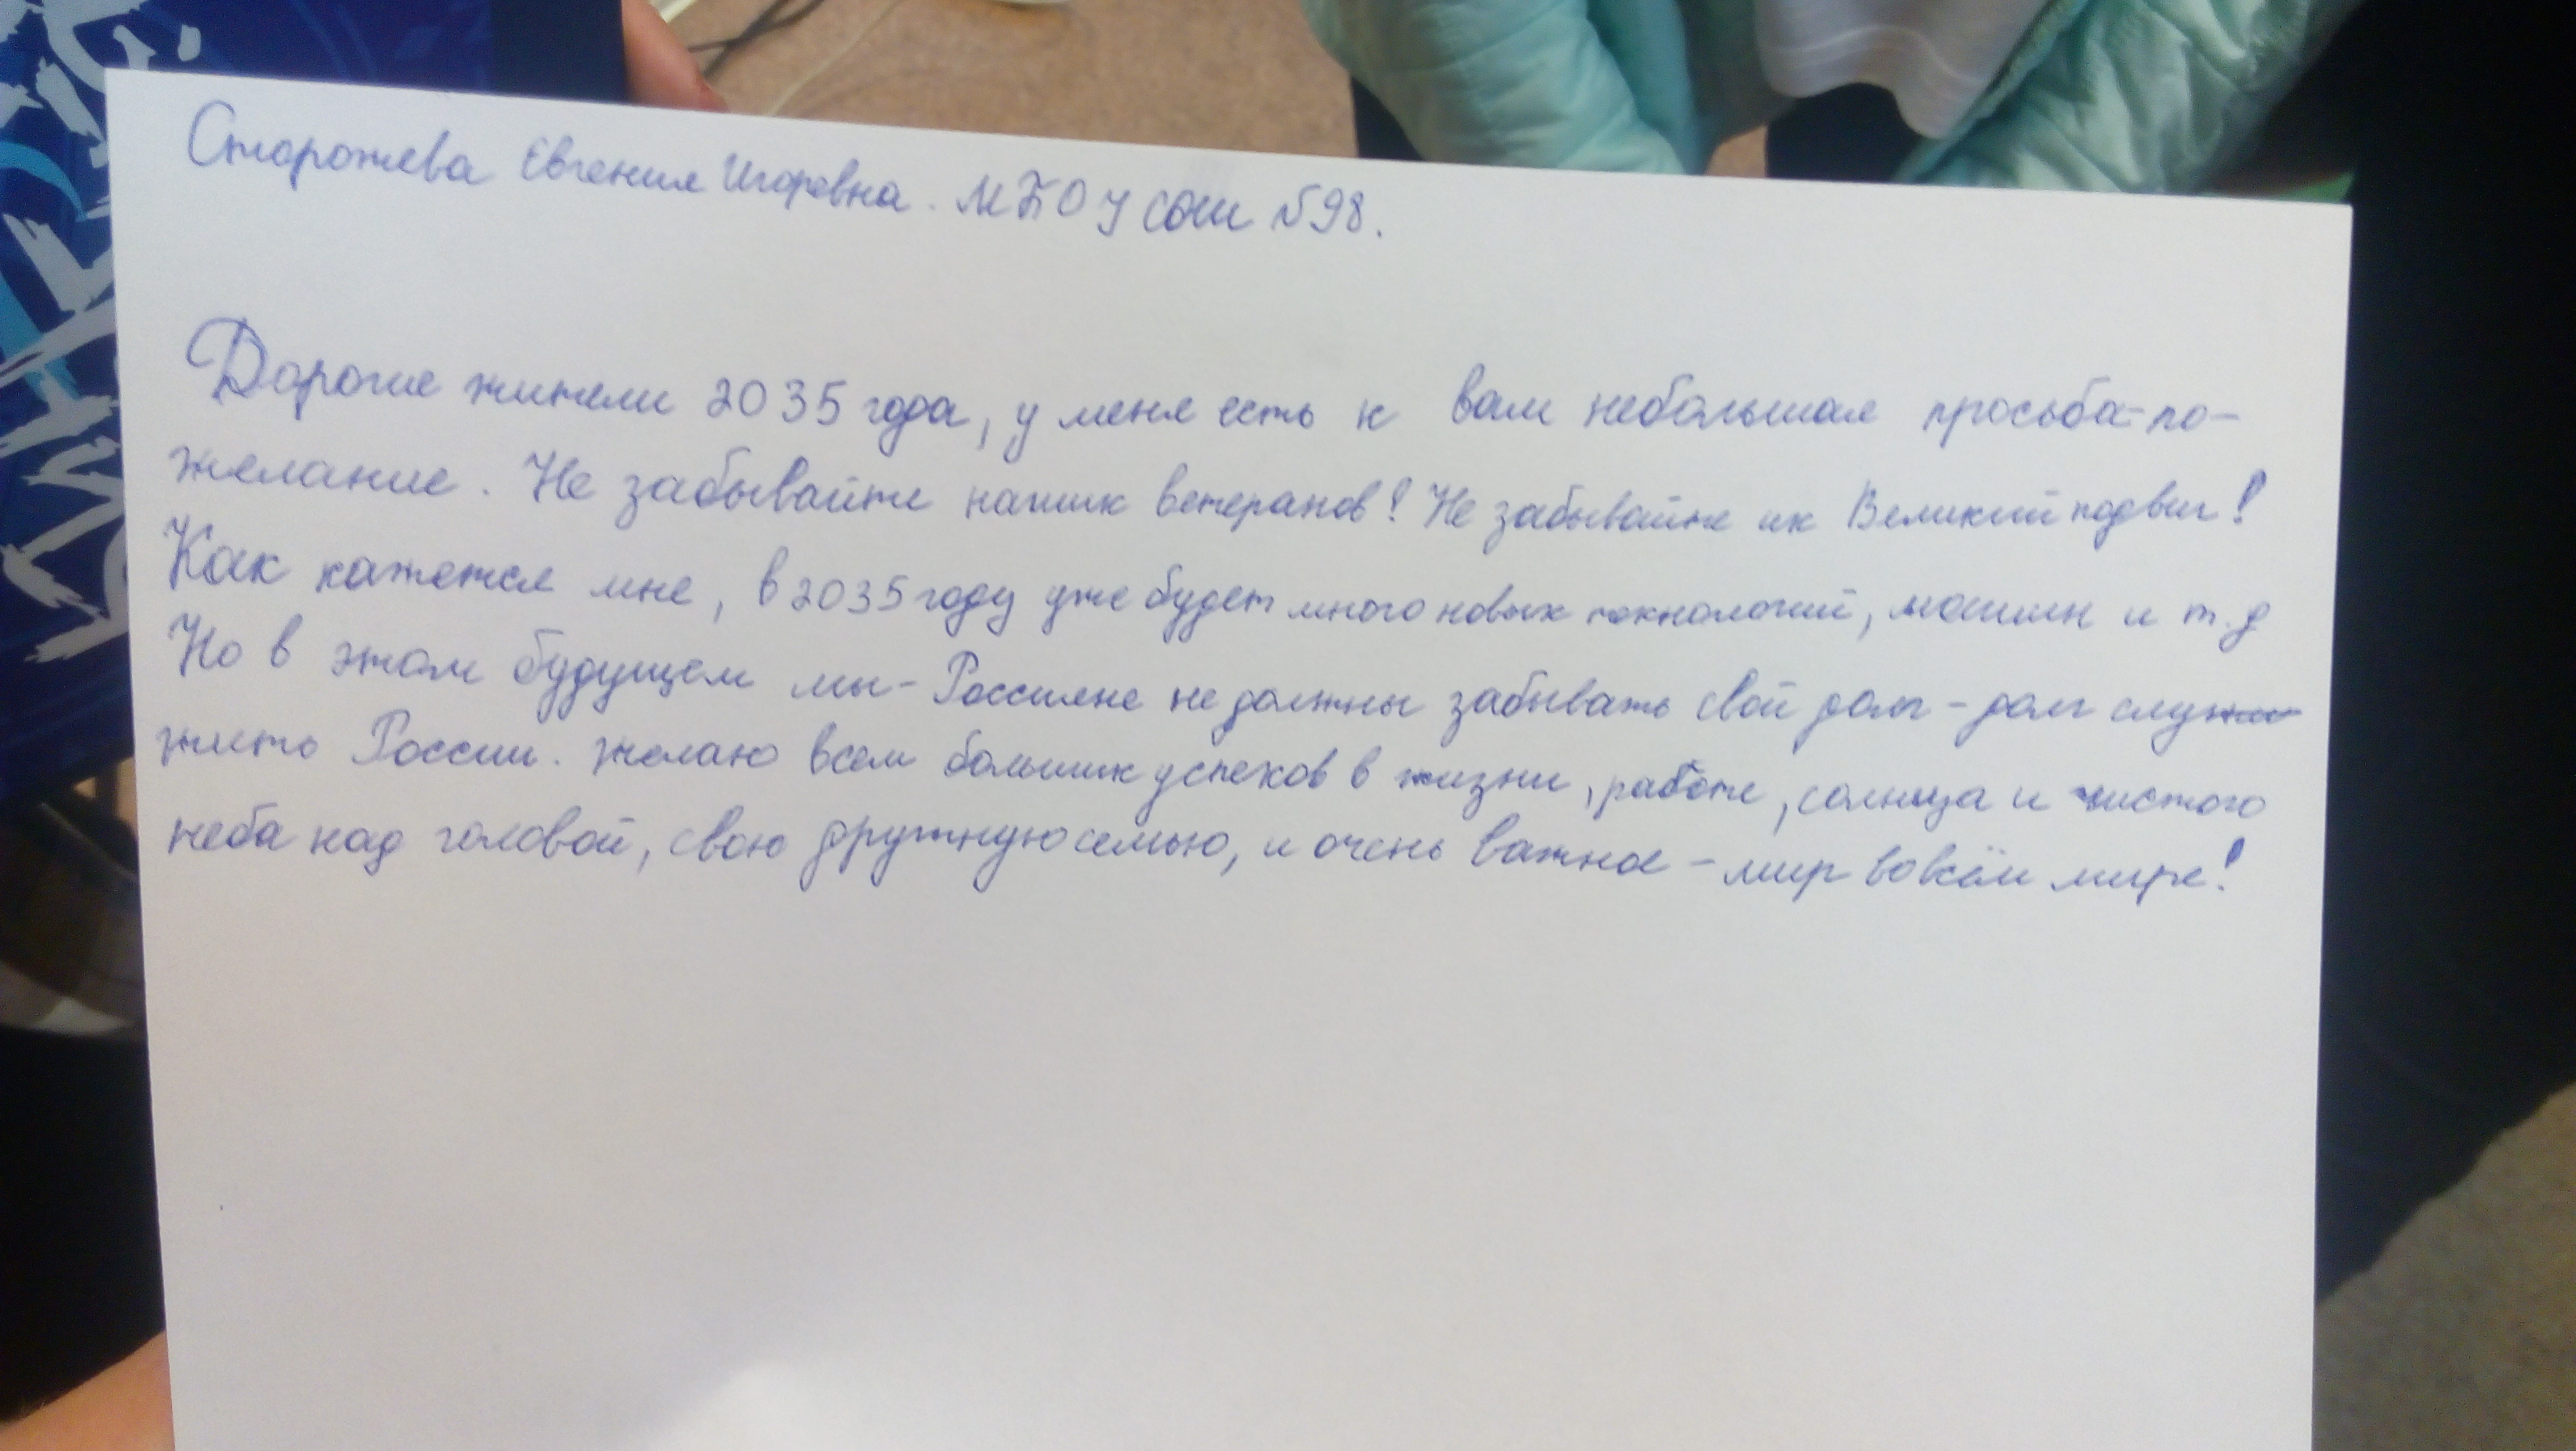 Сторожева Евгения Игоревна. МБОУ СОШ №98.
Дорогие жители 2035 года, у меня есть к вам небольшая просьба-по-
желание. Не забывайте наших ветеранов! Не забывайте их Великий подвиг!
Как кажется мне, в 2035 году уже будет много новых технологий, машин и т.д
Но в этом будущем мы - Россияне не должны забывать свой долг - долг слу
жить России. Желаю всем больших успехов в жизни, работе, солнца и чистого
неба над головой, свою дружную семью, и очень важное - мир во всём мире!